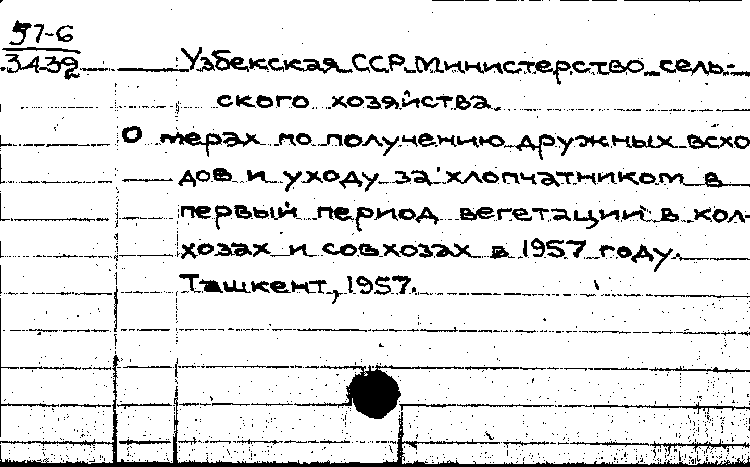 57-6
3439
Узбекская ССР. Министерство сель-
ского хозяйства.
О мерах по получению дружных всхо
дов и уходу за хлопчатником в
первый период вегетации в кол-
хозах и совхозах в 1957 году.
Ташкент, 1957.